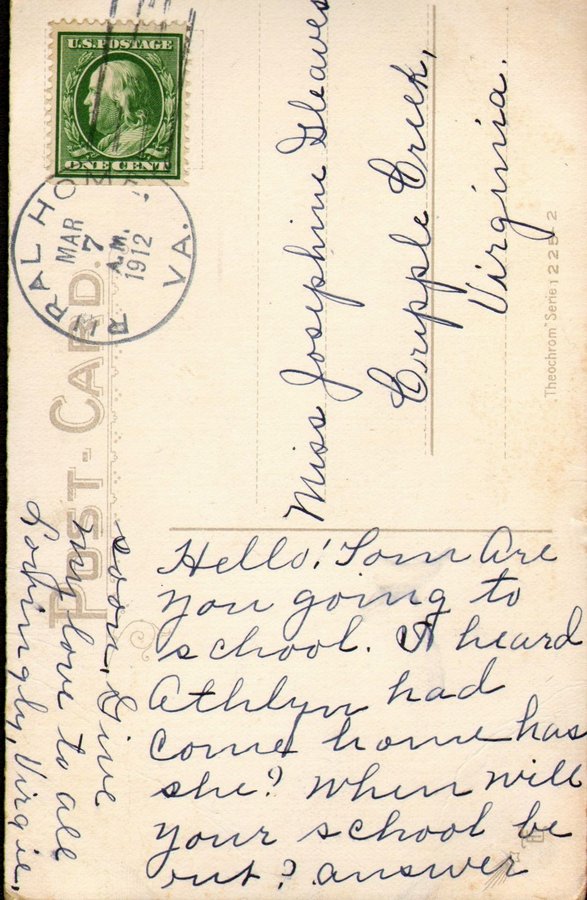 U.S. POSTAGE
ONE CENT
RURAL HOME, VA.
MAR
7
A.M.
1912
POST-CARD.
Miss Josephine Gleaves
Cripple Creek,
Virginia.
"Theochrom" Serie 1225 2
Hello! Tom Are
you going to
school. I heard
Athlyn had
come home has
she? When will
your school be
out? answer
soon, Give
my love to all
Lovingly, Virgie.